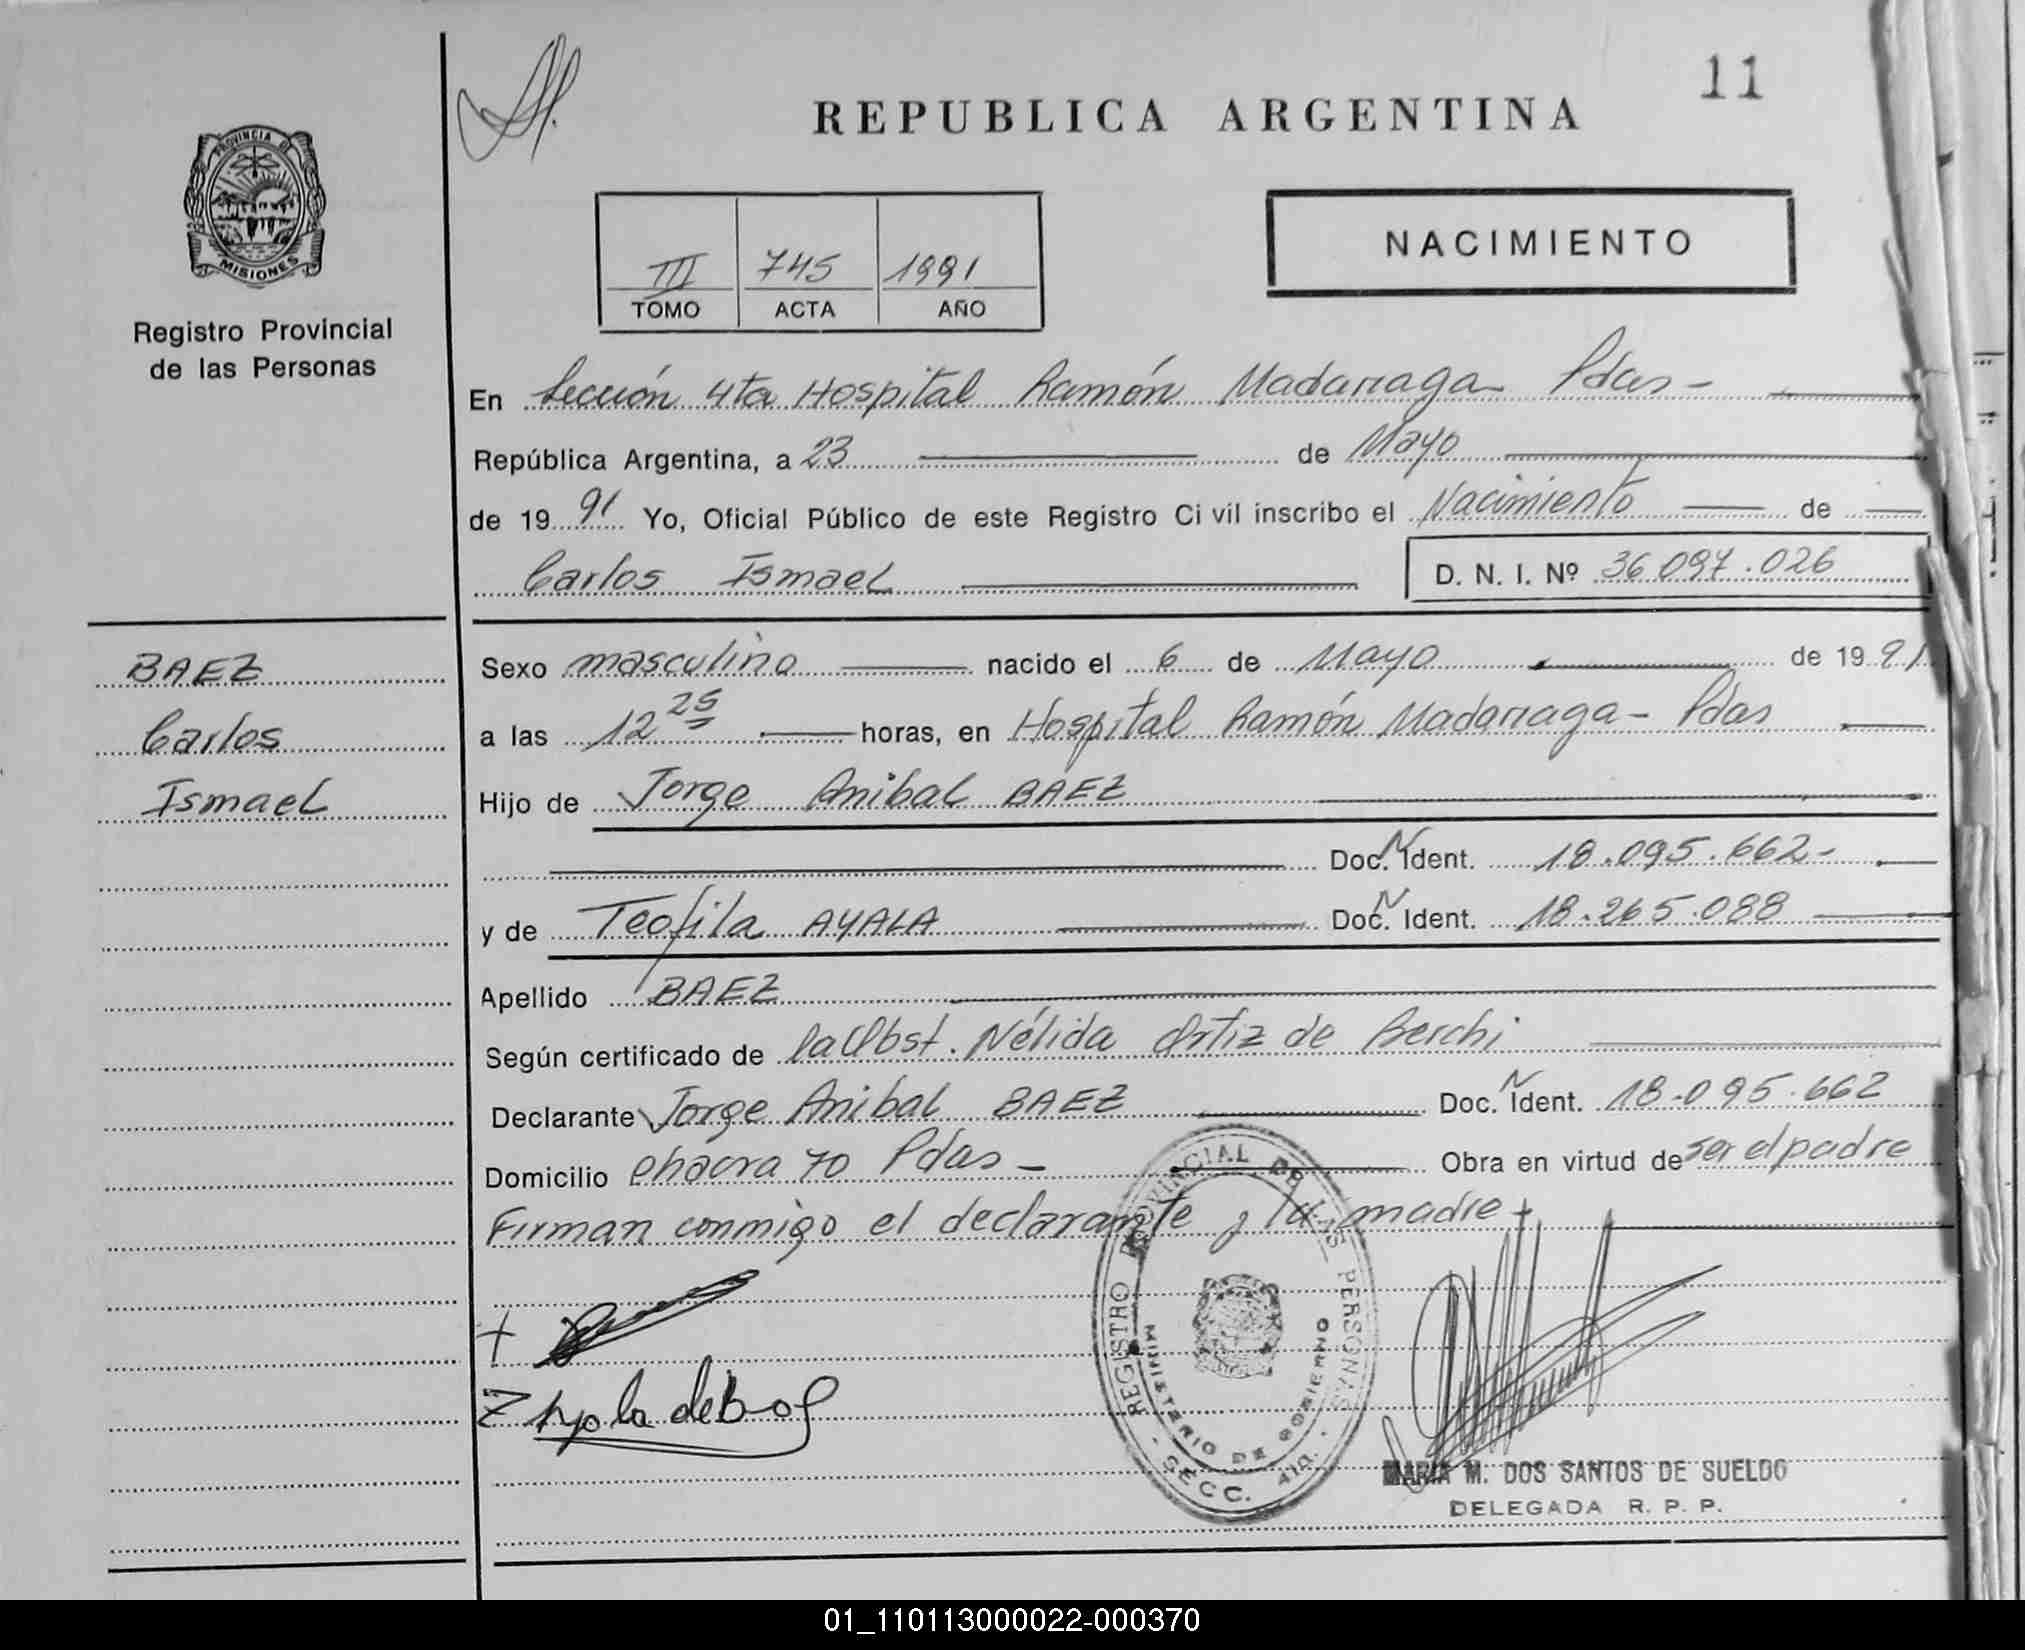 11
REPUBLICA ARGENTINA
PROVINCIA DE
MISIONES
Registro Provincial
de las Personas
III 745 1991
TOMO ACTA AÑO
NACIMIENTO
En Sección 4ta Hospital Ramón Madariaga Pdas-
República Argentina, a 23 de Mayo
de 1991 Yo, Oficial Público de este Registro Civil inscribo el Nacimiento de
Carlos Ismael D. N. I. Nº 36.097.026
BAEZ
Carlos
Ismael
Sexo masculino nacido el 6 de Mayo de 1991
a las 12 25 horas, en Hospital Ramón Madariaga- Pdas
Hijo de Jorge Anibal BAEZ
Doc. N Ident. 18.095.662-
y de Teofila AYALA Doc. N Ident. 18.265.088
Apellido BAEZ
Según certificado de la Obst. Nélida Ortiz de Berchi
Declarante Jorge Anibal BAEZ Doc. N Ident. 18.095.662
Domicilio chacra 70 Pdas- Obra en virtud de ser el padre
Firman conmigo el declarante y la madre
REGISTRO PROVINCIAL DE LAS PERSONAS
MINISTERIO DE GOBIERNO
- SECC. 4ta. -
MARIA M. DOS SANTOS DE SUELDO
DELEGADA R. P. P.
01_110113000022-000370